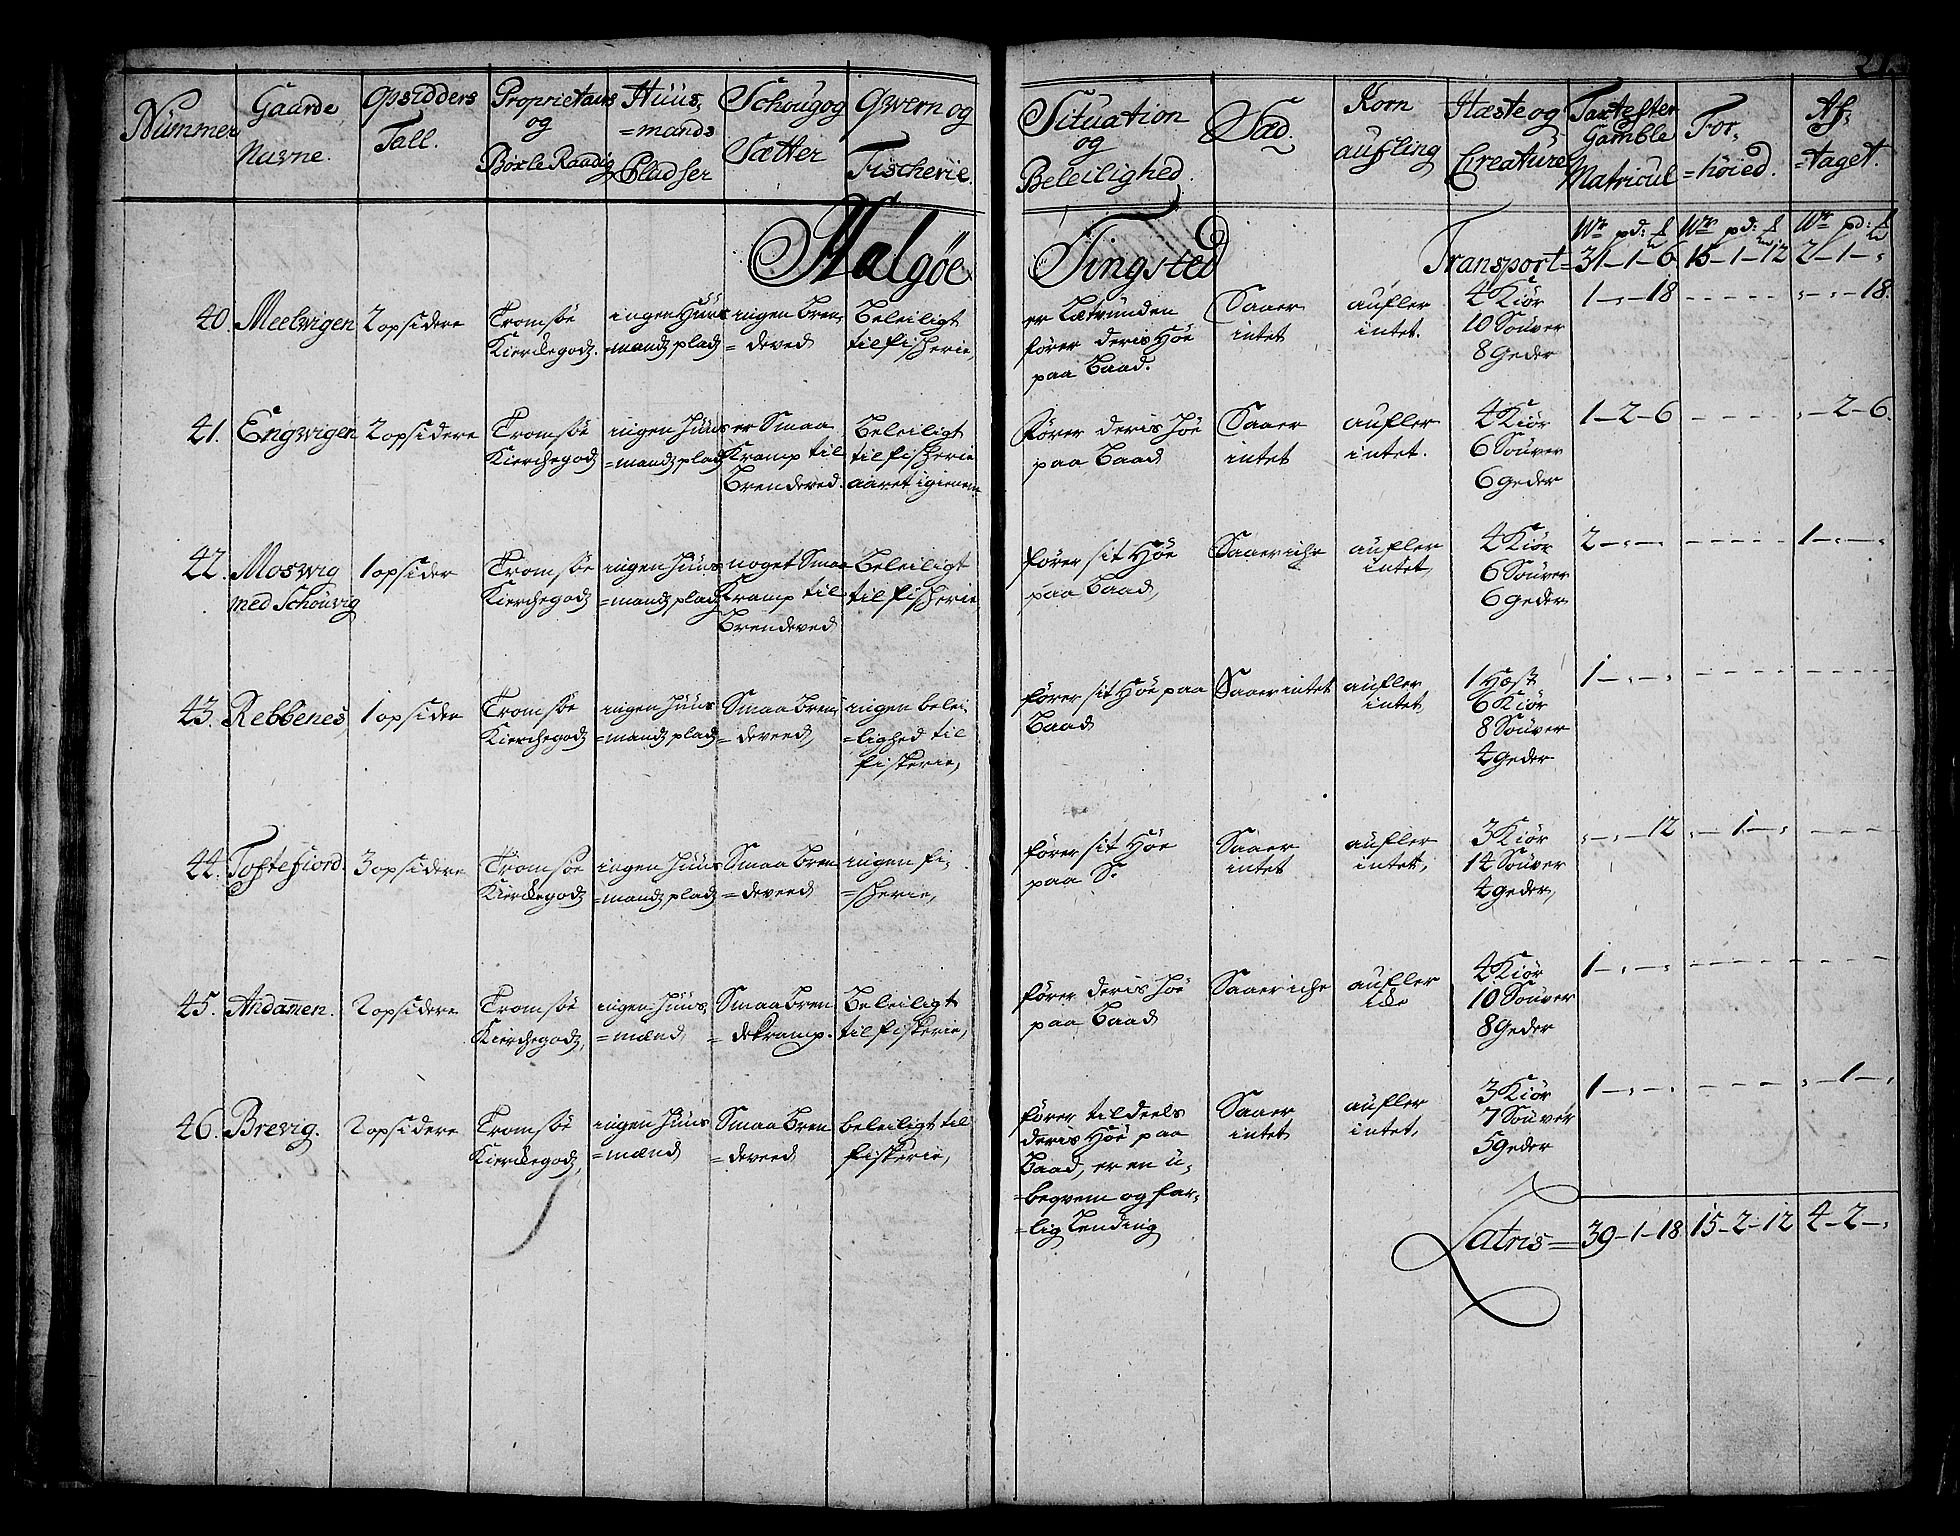 Nummer
Gaarde
Navne.
Opsidders
Tall.
Proprietairs
og
Böxle Raadig
Huus,
=mands
Pladser
Schougog
Sætter
Qvern og
Fischerie.
Situation
og
Beleilighed.
Sæd.
Korn
aufling
Hæste og
Creature
Taxt efter
Gamble
Matricul
For,
=höied.
Af,
=taget.
Halgöe Tingsted
Wr pd: £ Wr pd: £ Wr pd: £
Transport= 31-1-6 15-1-12 2-1-,
40. Meelvigen
2 opsidere
Tromsöe
Kierckegodz.
ingen Huus
=mandz pladz
ingen Bren,
=deved
Beleiligt
til fischerie,
er Letvunden
förer deris Höe
paa Baad.
Saaer
intet
aufler
intet.
4 Kiör
10 Souver
8 Geder
1-,-18 ----- ,-,-18.
41. Engvigen
2 opsidere
Tromsöe
Kierchegodz
ingen Huus
=mandz pladz
er Smaa
Kramp til
Brendeved.
Beleiligt
til fischerie
aaret igienem
förer deris Höe
paa Baad
Saaer
intet
aufler
intet.
4 Kiör
6 Souver
6 Geder
1-2-6 ----- ,-2-6.
42. Moswig
med Schouvig
1 opsider
Tromsöe
Kierchegodz
ingen Huus
=mandz pladz
noget Smaa
Kramp til
Brendeved
Beleiligt
til fischerie,
förer sit Höe
paa Baad,
Saaer iche
aufler
intet,
4 Kiör
6 Souver
6 Geder
2-,-, ----- 1-,-,
43. Rebbenes,
1 opsider
Tromsöe
Kierchegodz
ingen Huus
=mandz pladz
Smaa Bren,
=deveed,
ingen belei,
=lighed til
fiskerie,
förer sit Höe paa
Baad
Saaer intet
aufler
intet,
1 Hæst
6 Kiör
8 Souver
4 Geder
1-,-, ----- -----
44. Toftefiord.
3 opsidere
Tromsöe
Kierckegodz
ingen Huus
=mandz pladz
Smaa Bren
=deveed
ingen fi,
=scherie,
förer sit Höe
paa S:
Saaer
intet
aufler
intet,
3 Kiör
14 Souver
4 Geder,
,-,-12 ,-1-, -----
45. Andamen.
2 opsidere
Tromsöe
Kierchegodz,
ingen Huus,
=mænd
Smaa Bren
=dekramp.
Beleiligt
til fiskerie,
förer deris Höe
paa Baad
Saaer iche
aufler
4 Kiör
10 Souver
8 Geder
1-,-, ----- -----
46. Brevig.
2 opsidere
Tromsöe
Kierckegodz,
ingen Huus
=mænd
Smaa Bren
=deveed
beleiligt til
fiskerie,
förer tildeels
deris Höe paa
Baad, er en u,
=beqvem og far,
=lig Lending
Saaer
intet
aufler
intet,
3 Kiör
7 Souver
5 Geder
1-,-, ----- ,-1-,
Latris= 39-1-18 15-2-12 4-2-,